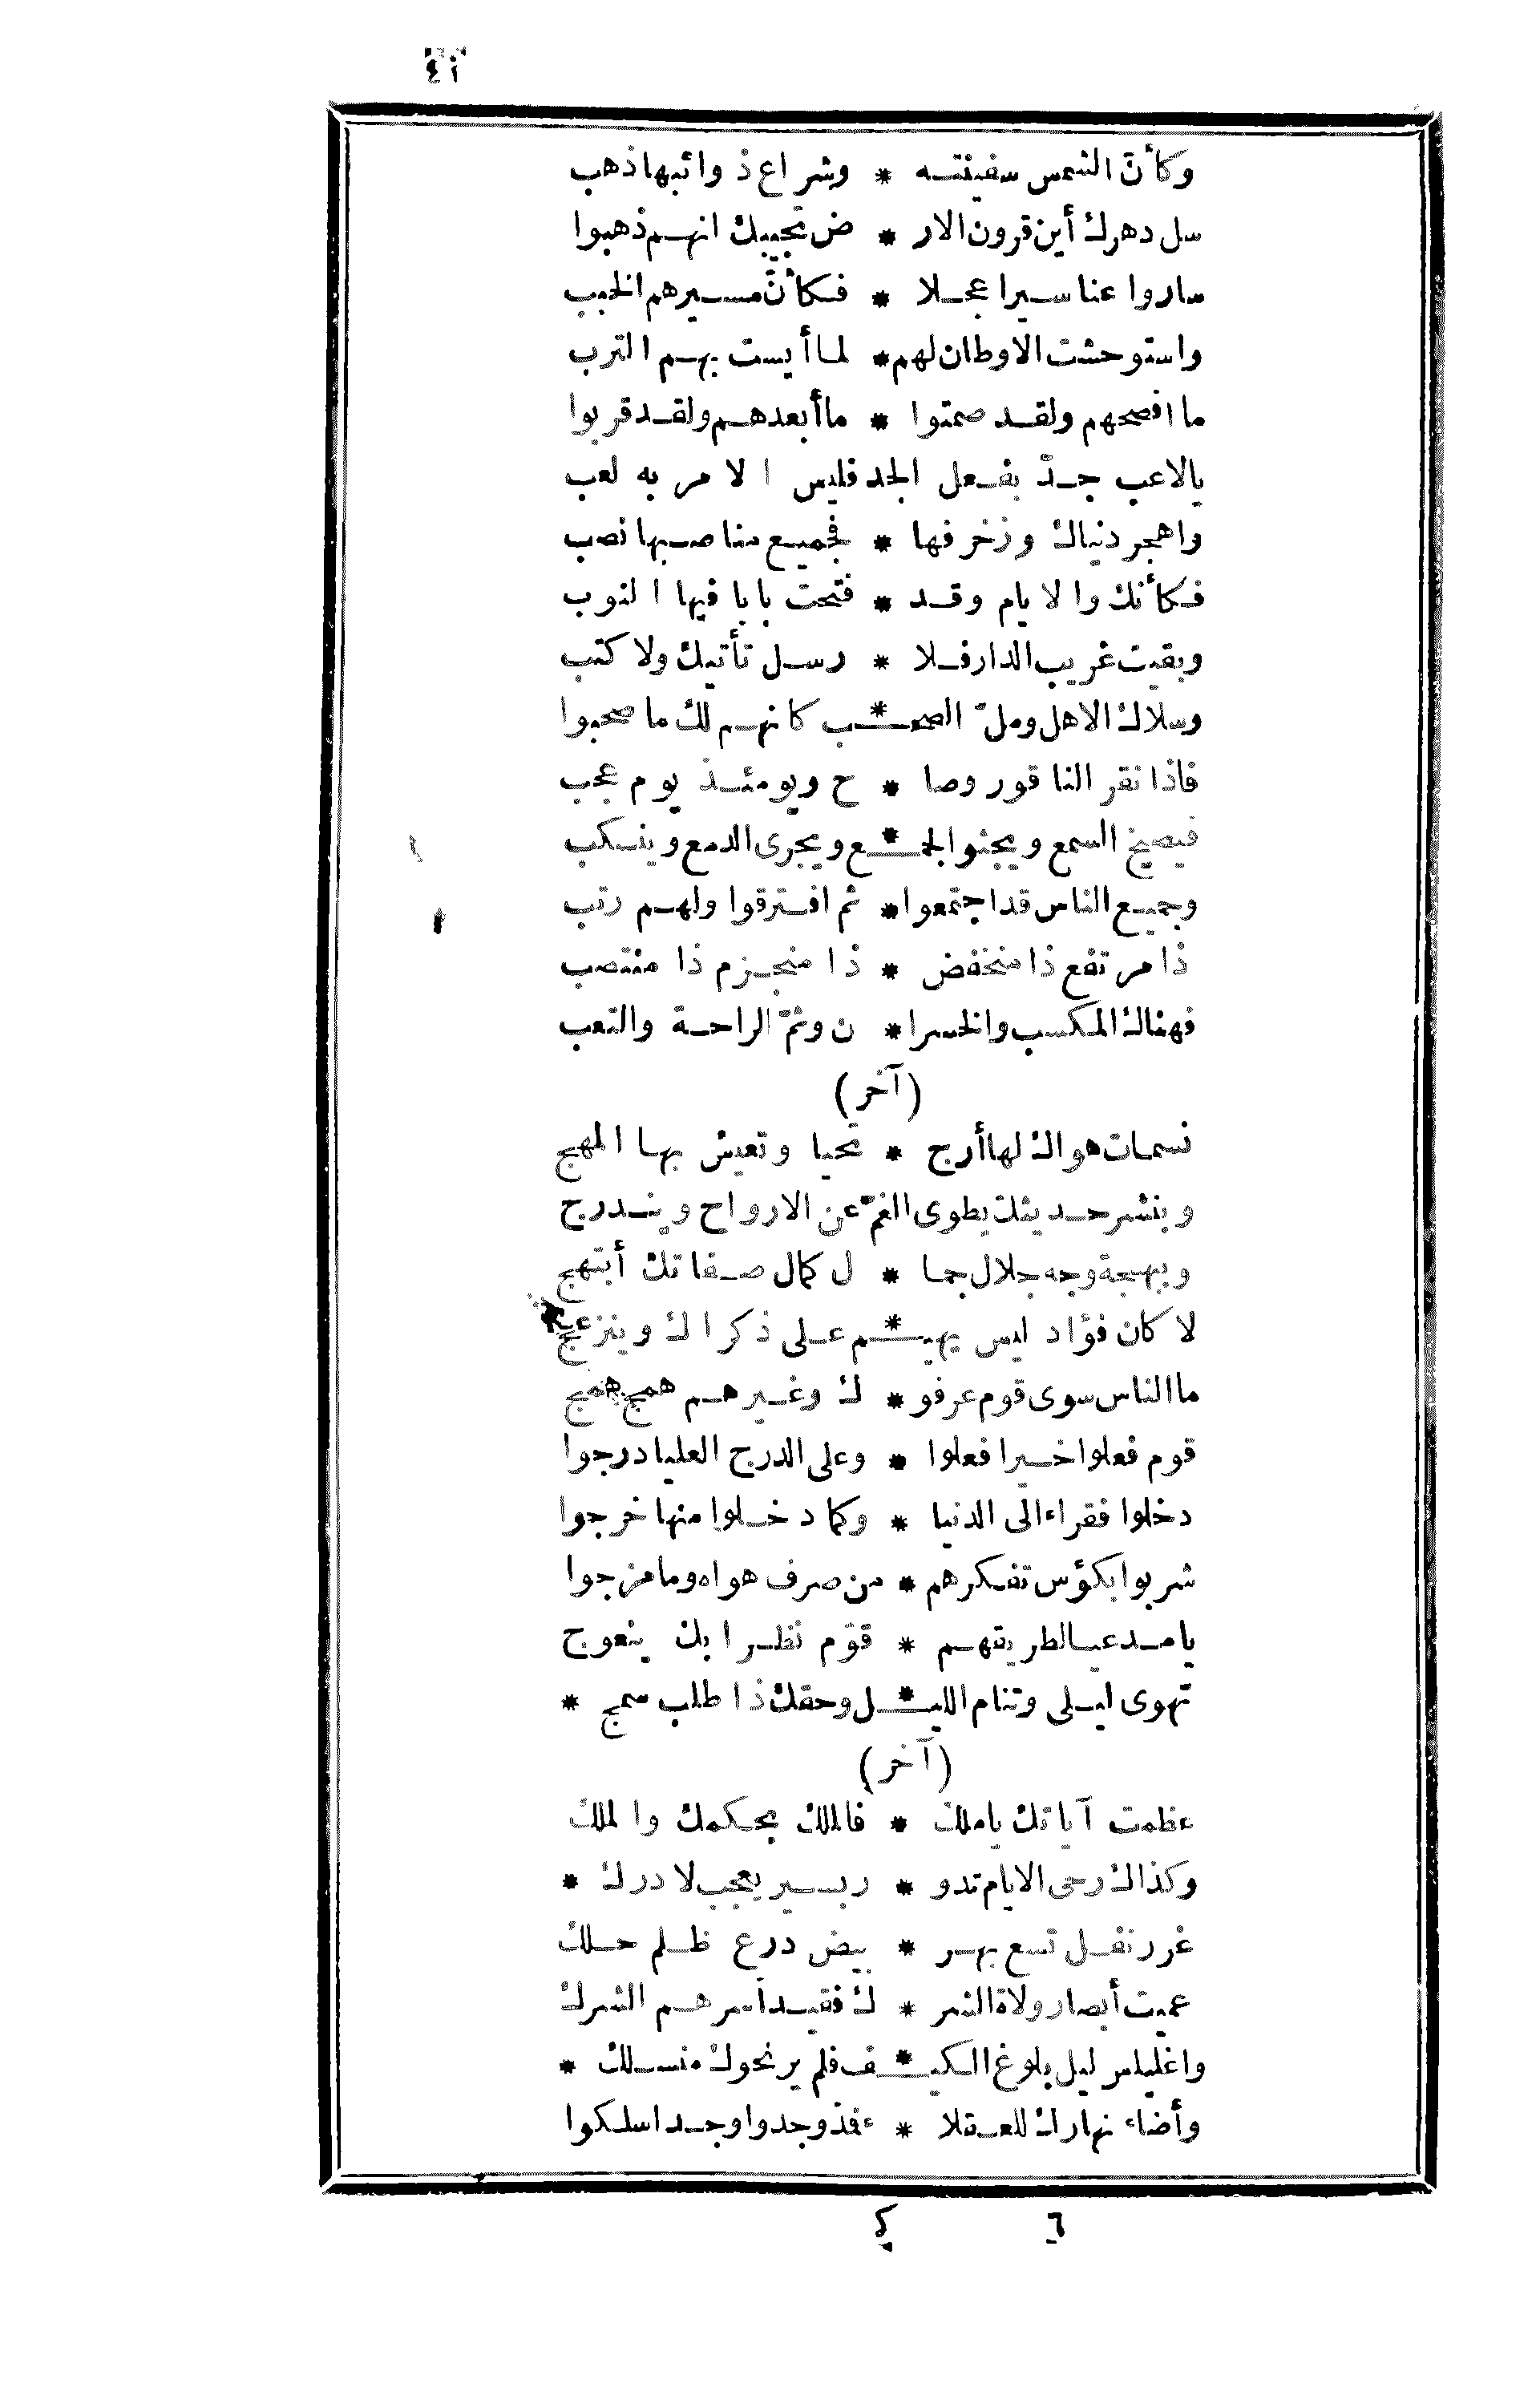 ٤١
وكأنّ الشمس سفينته * وشراع ذوائبها ذهب
سل دهرك أين قرون الار * ض تجيبك انهم ذهبوا
ساروا عنا سيرا عجلا * فكأنّ مسيرهم الخبب
واستوحشت الاوطان لهم * لما أيست بهم الترب
ما افصحهم ولقد صمتوا * ما أبعدهم ولقد قربوا
يالاعب جدّ بفعل الجد فليس الامر به لعب
واهجر دنياك وزخرفها * فجميع مناصبها نصب
فكأنك والايام وقد * فتحت بابا فيها النوب
وبقيت غريب الدار فلا * رسل تأتيك ولا كتب
وسلاك الاهل وملّ الصحـ * ـب كانهم لك ما صحبوا
فاذا نقر الناقور وصا * ح ويومئذ يوم عجب
فيصيخ السمع ويجثو الجمـ * ـع ويجرى الدمع وينسكب
وجميع الناس قد اجتمعوا * ثم افترقوا ولهم رتب
ذا مرتفع ذا منخفض * ذا منجزم ذا منتصب
فهناك المكسب والخسرا * ن وثمّ الراحة والتعب
(آخر)
نسمات هواك لها أرج * تحيا وتعيش بها المهج
وبنشر حديثك يطوى الغمّ عن الارواح ويندرج
وببهجة وجه جلال جما * ل كمال صفاتك أبتهج
لا كان فؤاد ليس يهيـ * ـم على ذكراك وينزعج
ما الناس سوى قوم عرفو * ك وغيرهم همج همج
قوم فعلوا خيرا فعلوا * وعلى الدرج العليا درجوا
دخلوا فقراء الى الدنيا * وكما دخلوا منها خرجوا
شربوا بكؤس تفكرهم * من صرف هواه وما مزجوا
يا مدعيا لطريقهم * قوّم نظرا بك ينعوج
تهوى ليلى وتنام الليـ * ـل وحقك ذا طلب سمج *
(آخر)
عظمت آياتك يا ملك * فالملك بحكمك والملك
وكذاك رحى الايام تدو * ر بسير يعجب لا درك *
غرر نفل تسع بهر * بيض درع ظلم حلك
عميت أبصار ولاة الشر * ك فقيد أسرهم الشرك
واغليلس ليل بلوغ الكيـ * ـف فلم ير نحوك منسلك *
وأضاء نهارك للعقلا * ء فمذ وجدوا وجدا سلكوا
٦